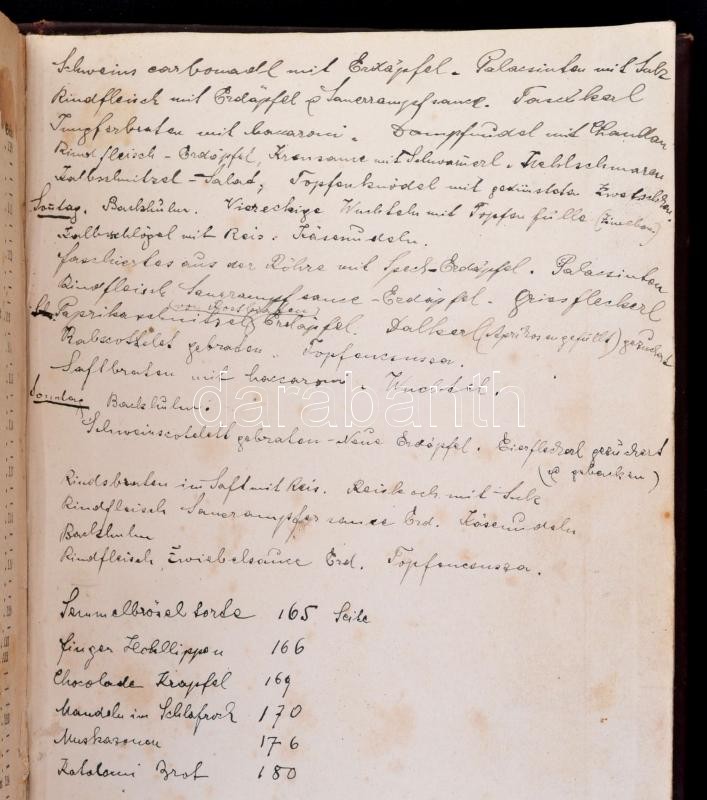 Schweinscarbonadl mit Erdäpfel. Palacsinten mit Sulz
Rindfleisch mit Erdäpfel u Sauerrampfsauce. Taschkerl
Jungferbraten mit Maccaroni. Dampfnudel mit Chaudau
Rindfleisch - Erdäpfel, Krensauce mit Schwammerl. Mehlschmaren
Kalbschnitzel - Salat; Topfenknödel mit gedünsteten Zwetschken.
Sontag. Backhuhn. Viereckige Wuchteln mit Topfen fülle
Kalbschlögel mit Reis. Käsenudeln.
faschiertes aus der Röhre mit Speck-Erdäpfel. Palacsinten
Rindfleisch Sauerrampfsauce - Erdäpfel. Griesfleckerl
Paprikaschnitzel Erdäpfel. Dalkerl (Aprikosen gefüllt) gezuckert
gebraten. Topfencsusza.
Saftbraten mit Maccaroni.
Sonntag Backhuhn.
darabanth
Schweinscotelett gebraten - Neue Erdäpfel. Eierfleckerl gezuckert
(u gebacken)
Rindsbraten im Saft mit Reis. Reiskoch mit Sulz
Rindfleisch Sauerrampfer sauce Erd. Käsenudeln
Backhuhn
Rindfleisch Zwiebelsauce Erd. Topfencsusza.
Semmelbrösel torte 165 Seite
finger Hohllippen 166
Chocolade Krapfel 169
Mandeln im Schlafrock 170
Muskazonen 176
Katalani Brot 180